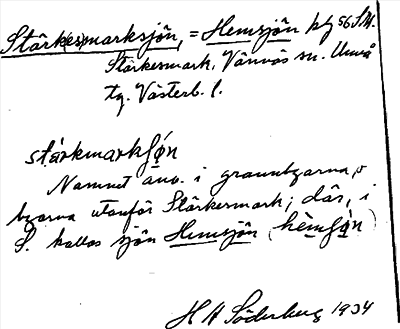 Stärk(es)marksjön, = Hemsjön på 56 S.M.
Stärkesmark, Vännäs sn. Umeå
tg. Västerb. l.
stärkmarkʃǿn
Namnet anv. i grannbyarna, o
byarna utanför Stärkesmark; där, i
S. kallas sjön Hemsjön (hèmʃǿn)
H A Söderberg 1934